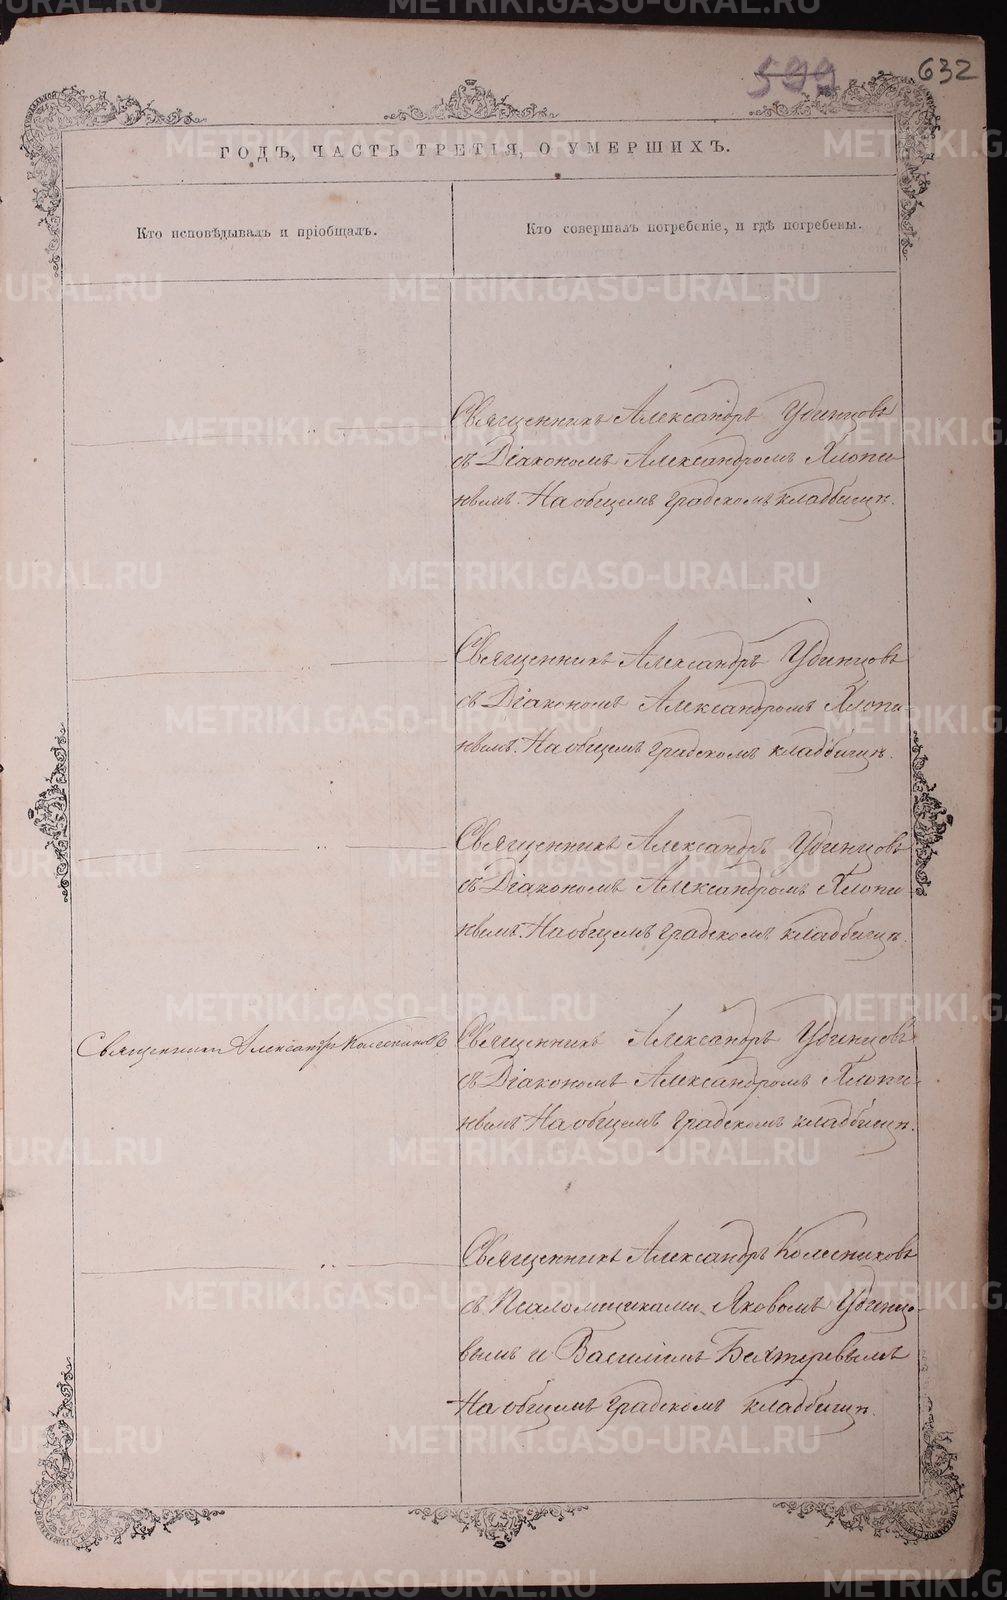 599
632
ГОДЪ, ЧАСТЬ ТРЕТІЯ, О УМЕРШИХЪ.
Кто исповѣдывалъ и пріобщалъ.
Кто совершалъ погребеніе, и гдѣ погребены.
Священникъ Александръ Удинцовъ
съ Діакономъ Александромъ Хлопи-
нымъ. На общемъ градскомъ кладбищѣ.
Священникъ Александръ Удинцовъ
съ Діакономъ Александромъ Хлопи-
нымъ. На общемъ градскомъ кладбищѣ.
Священникъ Александръ Удинцовъ
съ Діакономъ Александромъ Хлопи-
нымъ. На общемъ градскомъ кладбищѣ.
Священникъ Александръ Колесниковъ
Священникъ Александръ Удинцовъ
съ Діакономъ Александромъ Хлопи-
нымъ. На общемъ градскомъ кладбищѣ.
Священникъ Александръ Колесниковъ
съ Псаломщиками Яковомъ Удинцо-
вымъ и Василіемъ Бехтеревымъ
На общемъ градскомъ кладбищѣ.
METRIKI.GASO-URAL.RU